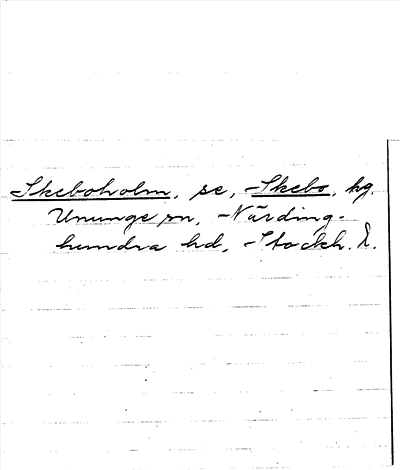 Skeboholm, se, Skebo, hg.
Ununge sn, Närding-
hundra hd, Stockh. l.